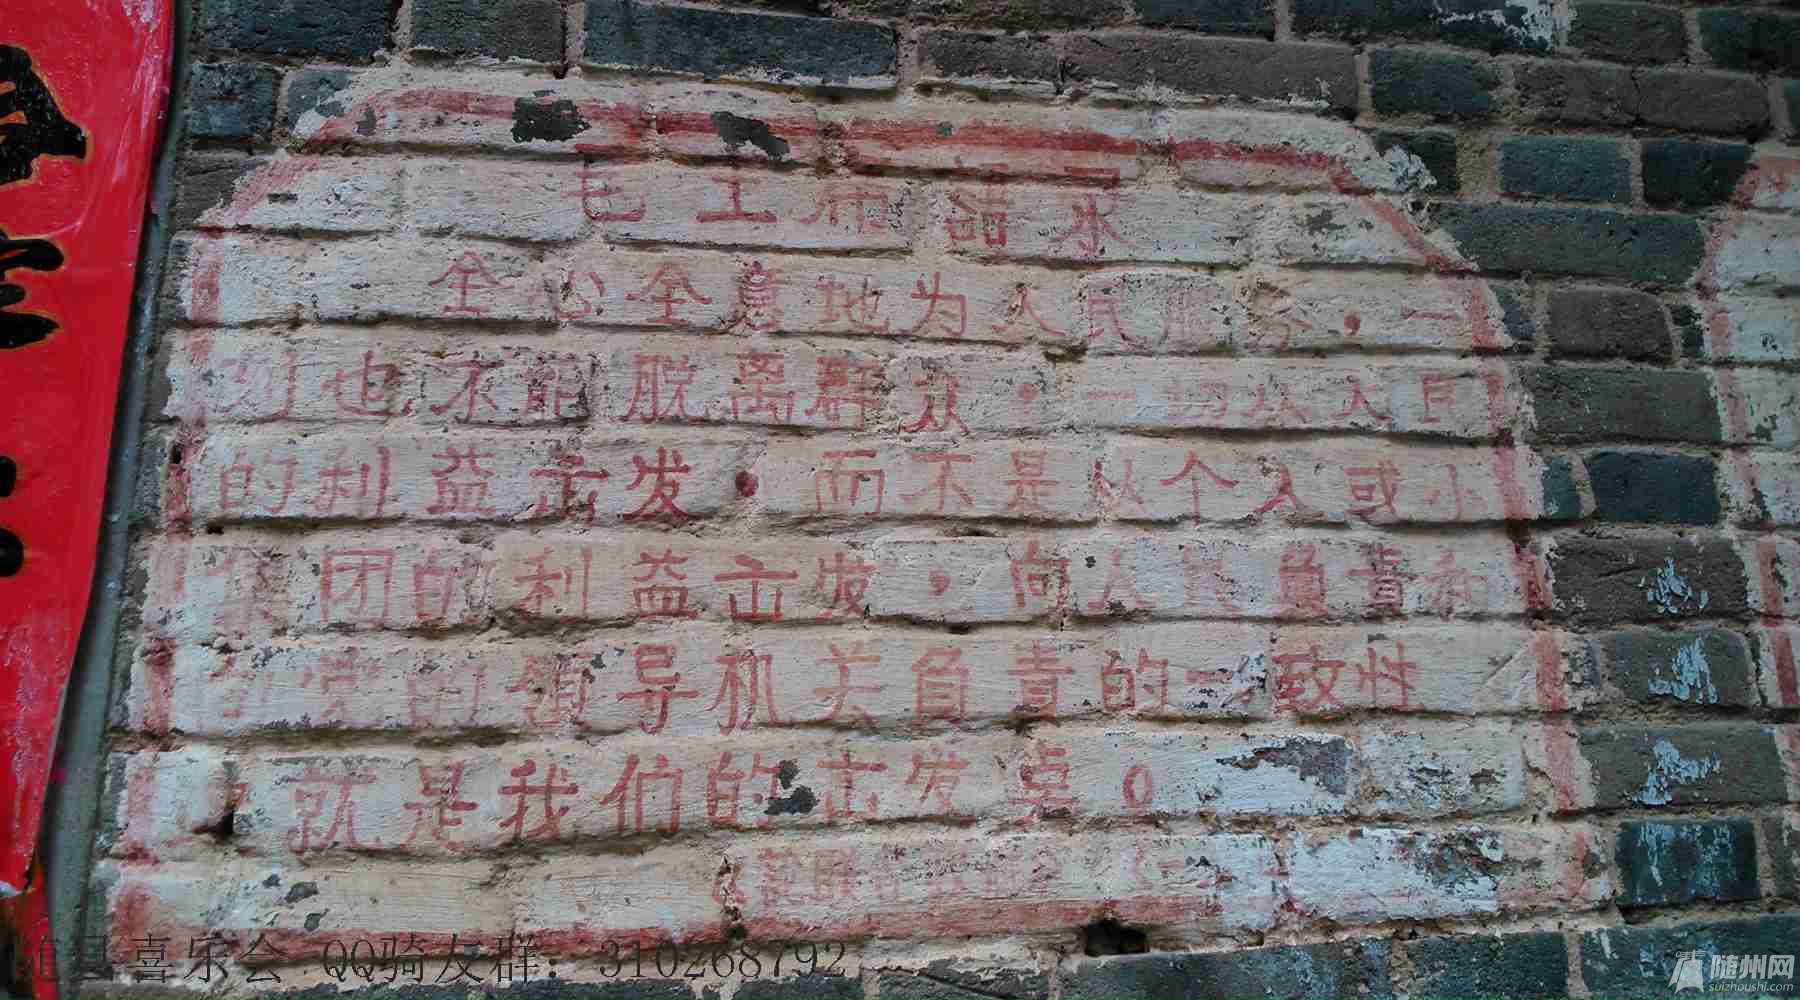 毛主席语录
全心全意地为人民服务，一
刻也不能脱离群众；一切从人民
的利益出发，而不是从个人或小
集团的利益出发；向人民负责和
向党的领导机关负责的一致性
这些就是我们的出发点。
县喜乐会 QQ骑友群：310268792
随州网
suizhoushi.com